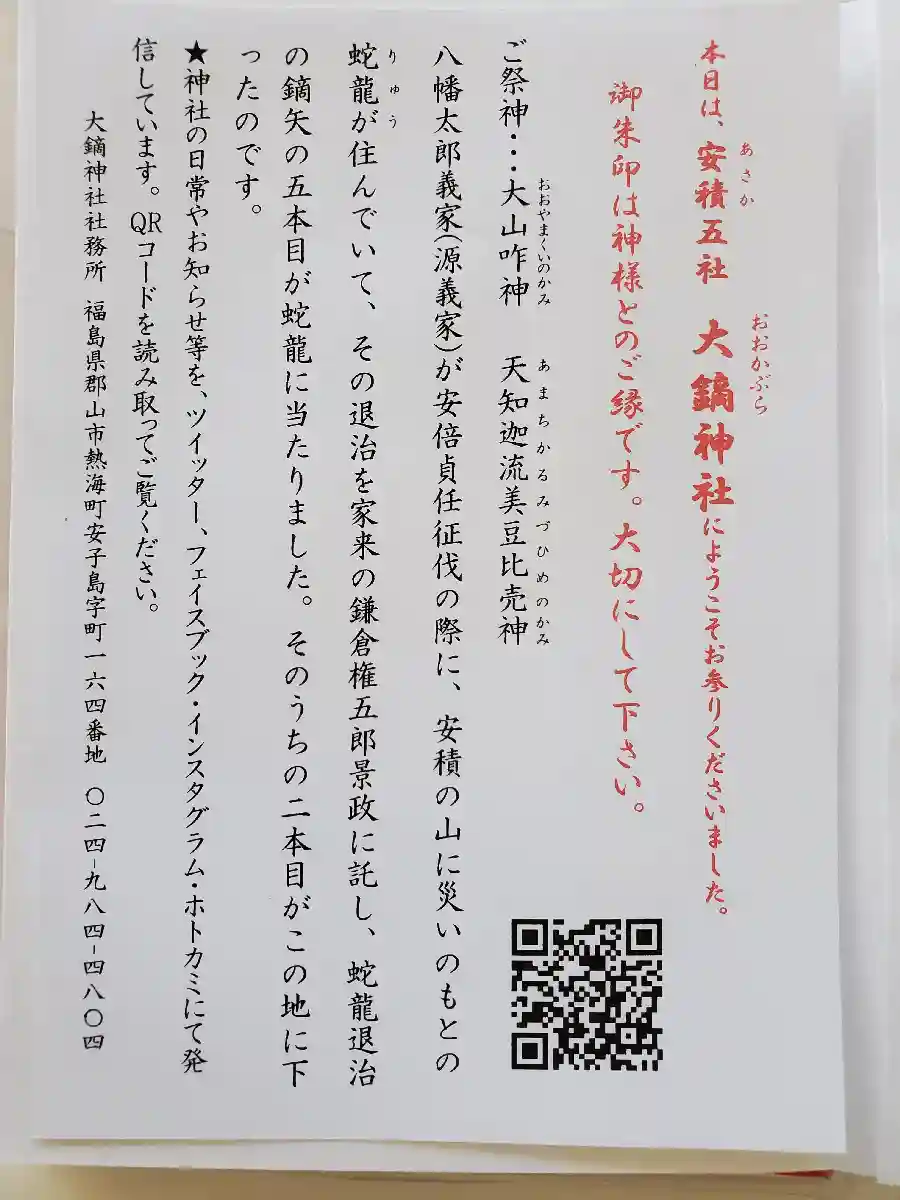 本日は、安積五社　大鏑神社にようこそお参りくださいました。
あさか
おおかぶら
御朱印は神様とのご縁です。大切にして下さい。
ご祭神・・・大山咋神　天知迦流美豆比売神
おおやまくいのかみ
あまちかるみづひめのかみ
八幡太郎義家(源義家)が安倍貞任征伐の際に、安積の山に災いのもとの
蛇龍が住んでいて、その退治を家来の鎌倉権五郎景政に託し、蛇龍退治
りゅう
の鏑矢の五本目が蛇龍に当たりました。そのうちの二本目がこの地に下
ったのです。
★神社の日常やお知らせ等を、ツイッター、フェイスブック・インスタグラム・ホトカミにて発
信しています。QRコードを読み取ってご覧ください。
大鏑神社社務所　福島県郡山市熱海町安子島字町一六四番地　〇二四-九八四-四八〇四